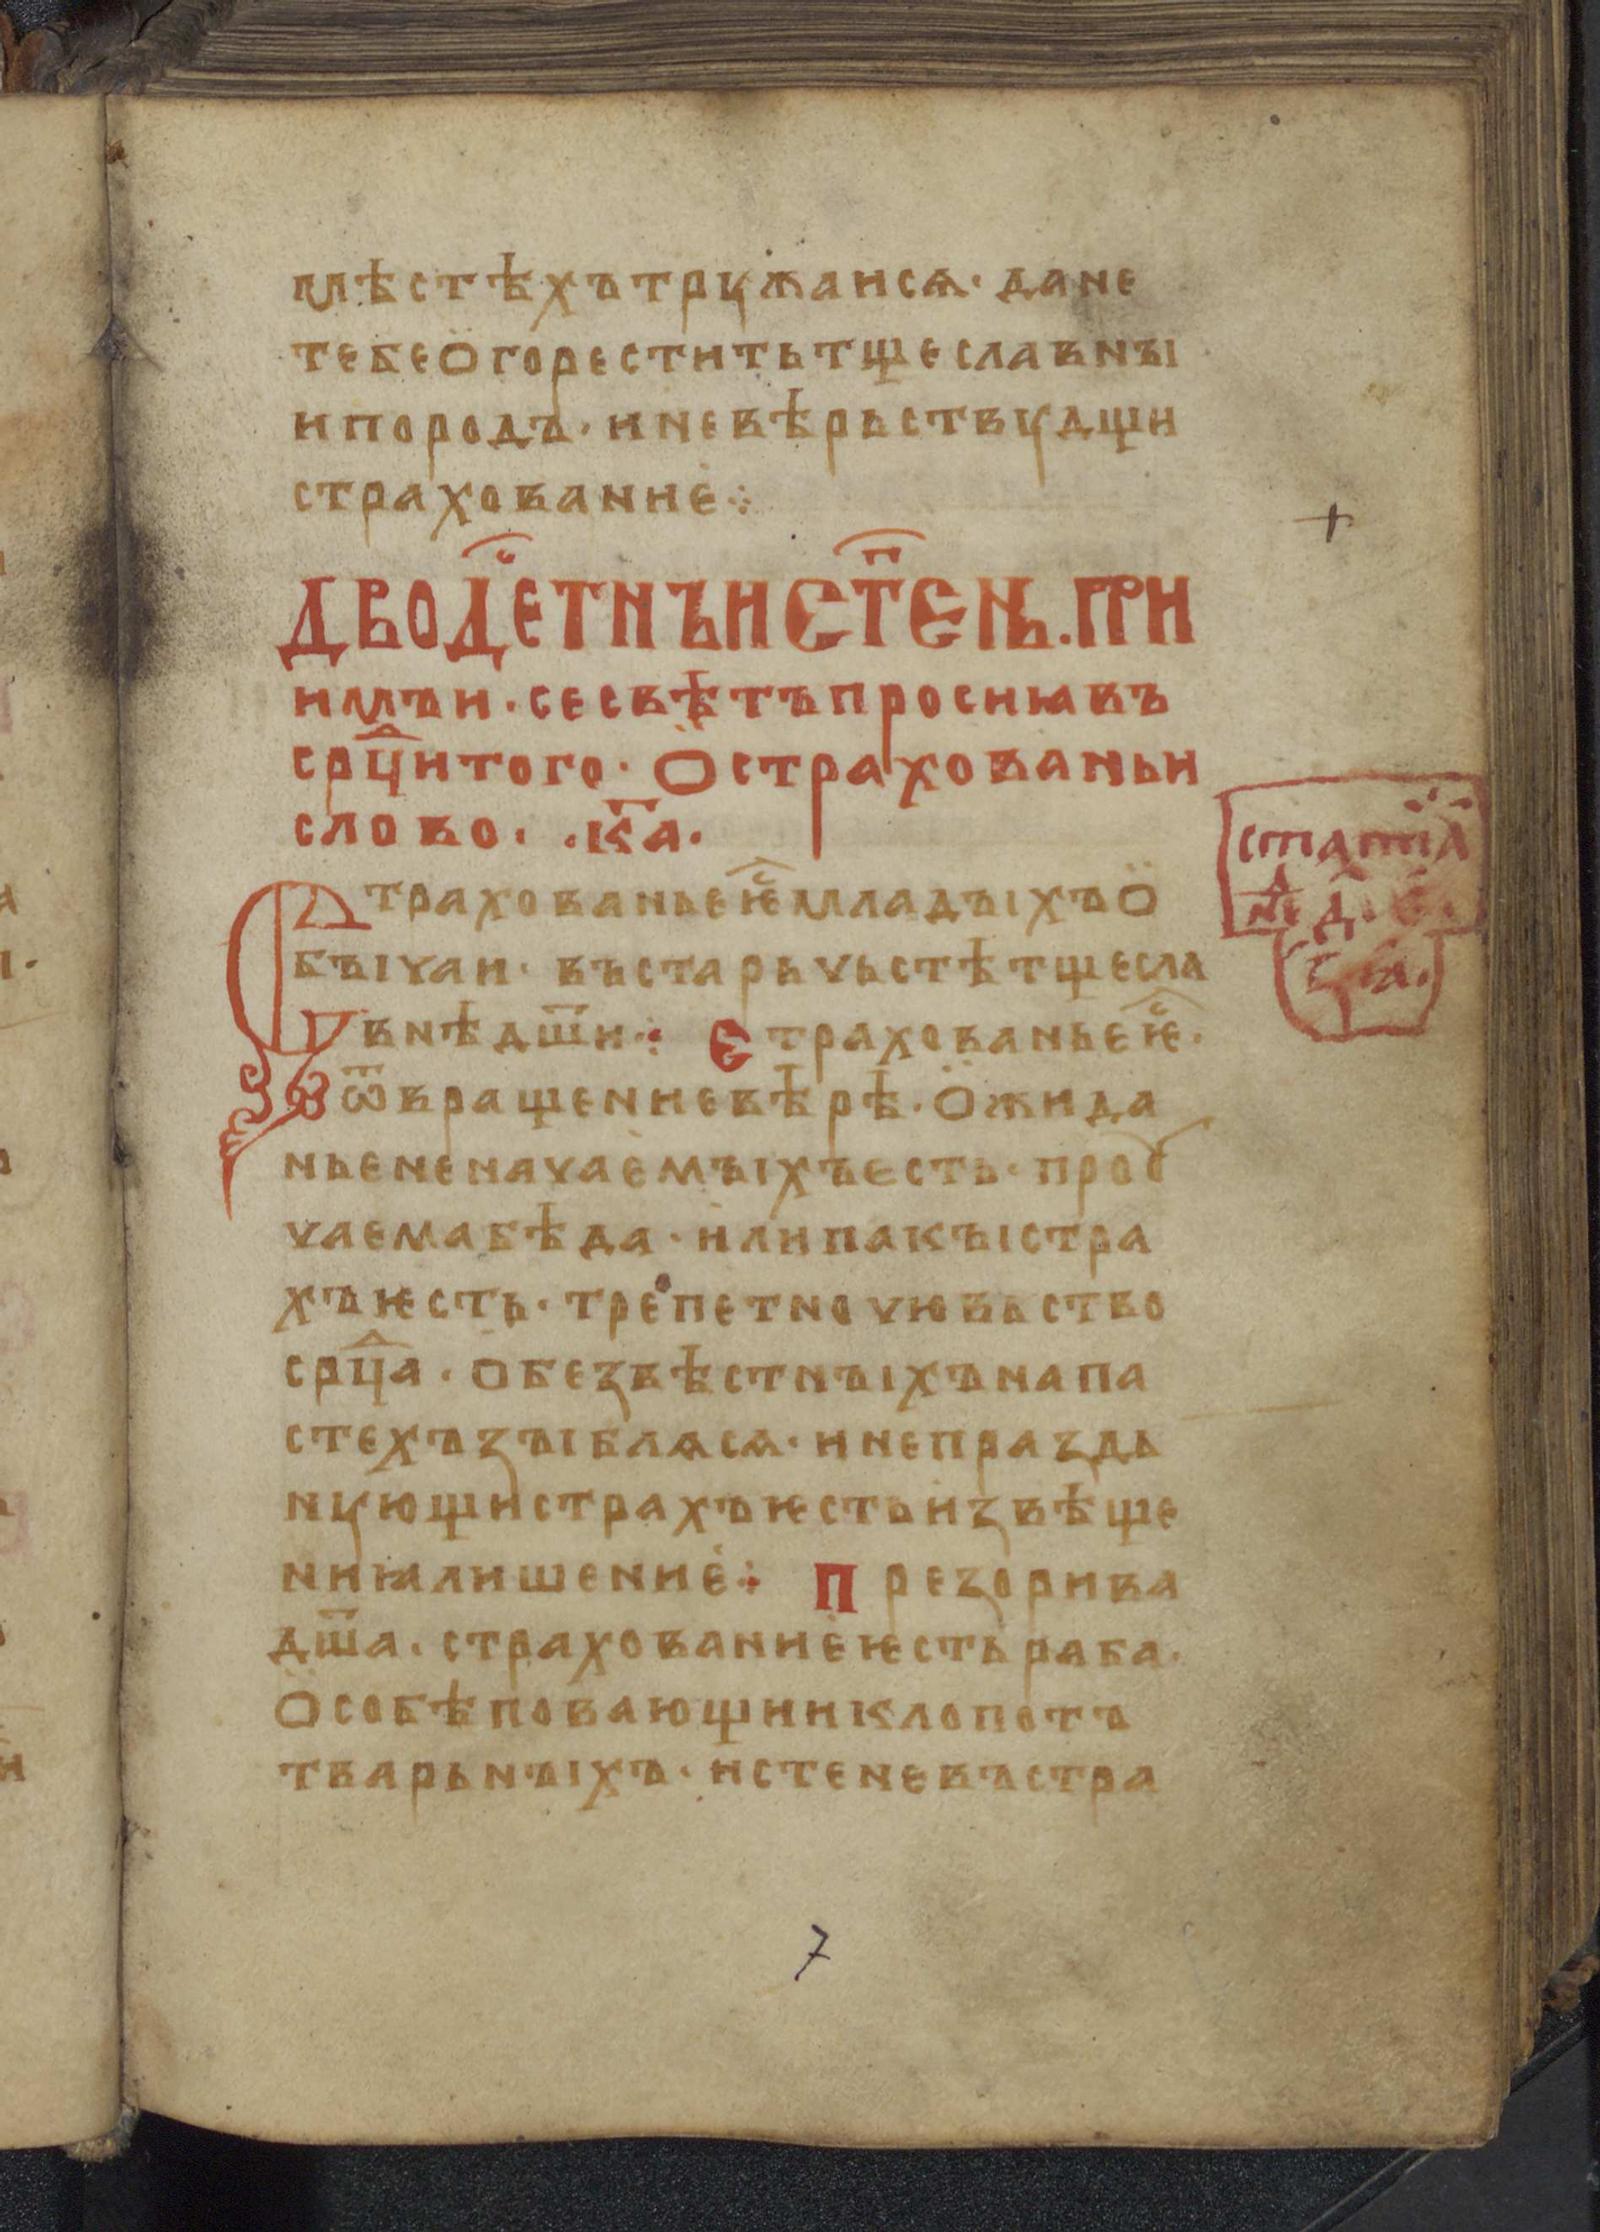 мѣстѣхътрꙋжаисѧ· дане
тебеӧгореститьтщеславнꙑ
ипородъ· иневѣрьствꙋꙗщи
страхованиѥ҆·:·
двод҇етнъиестп҃ень. при
имъи· сесвѣтъпросиꙗвъ
срц҃итого· Ӧстрахованьи
слово· ·к҃а·
Страхованьеѥ҇младꙑхъӧ
бꙑчаи· въстарьчьстѣтщесла
внѣдш҃и·: Страхованьеѥ҇·
ѿвращениевѣрѣ· Ӧжида
ньененачаемꙑхъесть· проꙋ
чаемабѣда· илипакꙑстра
хъѥсть· трепетночювьство
срц҃а· обезвѣстнꙑхънапа
стехъзꙑблѧсѧ· инепраздь
нꙋющистрахъѥстьизвѣще
ниꙗлишение·: Презорива
дш҃а· страхованиеѥстьраба·
Ӧсобѣповающииклопотъ
тварьнꙑхъ· истеневъстра
статїа
7